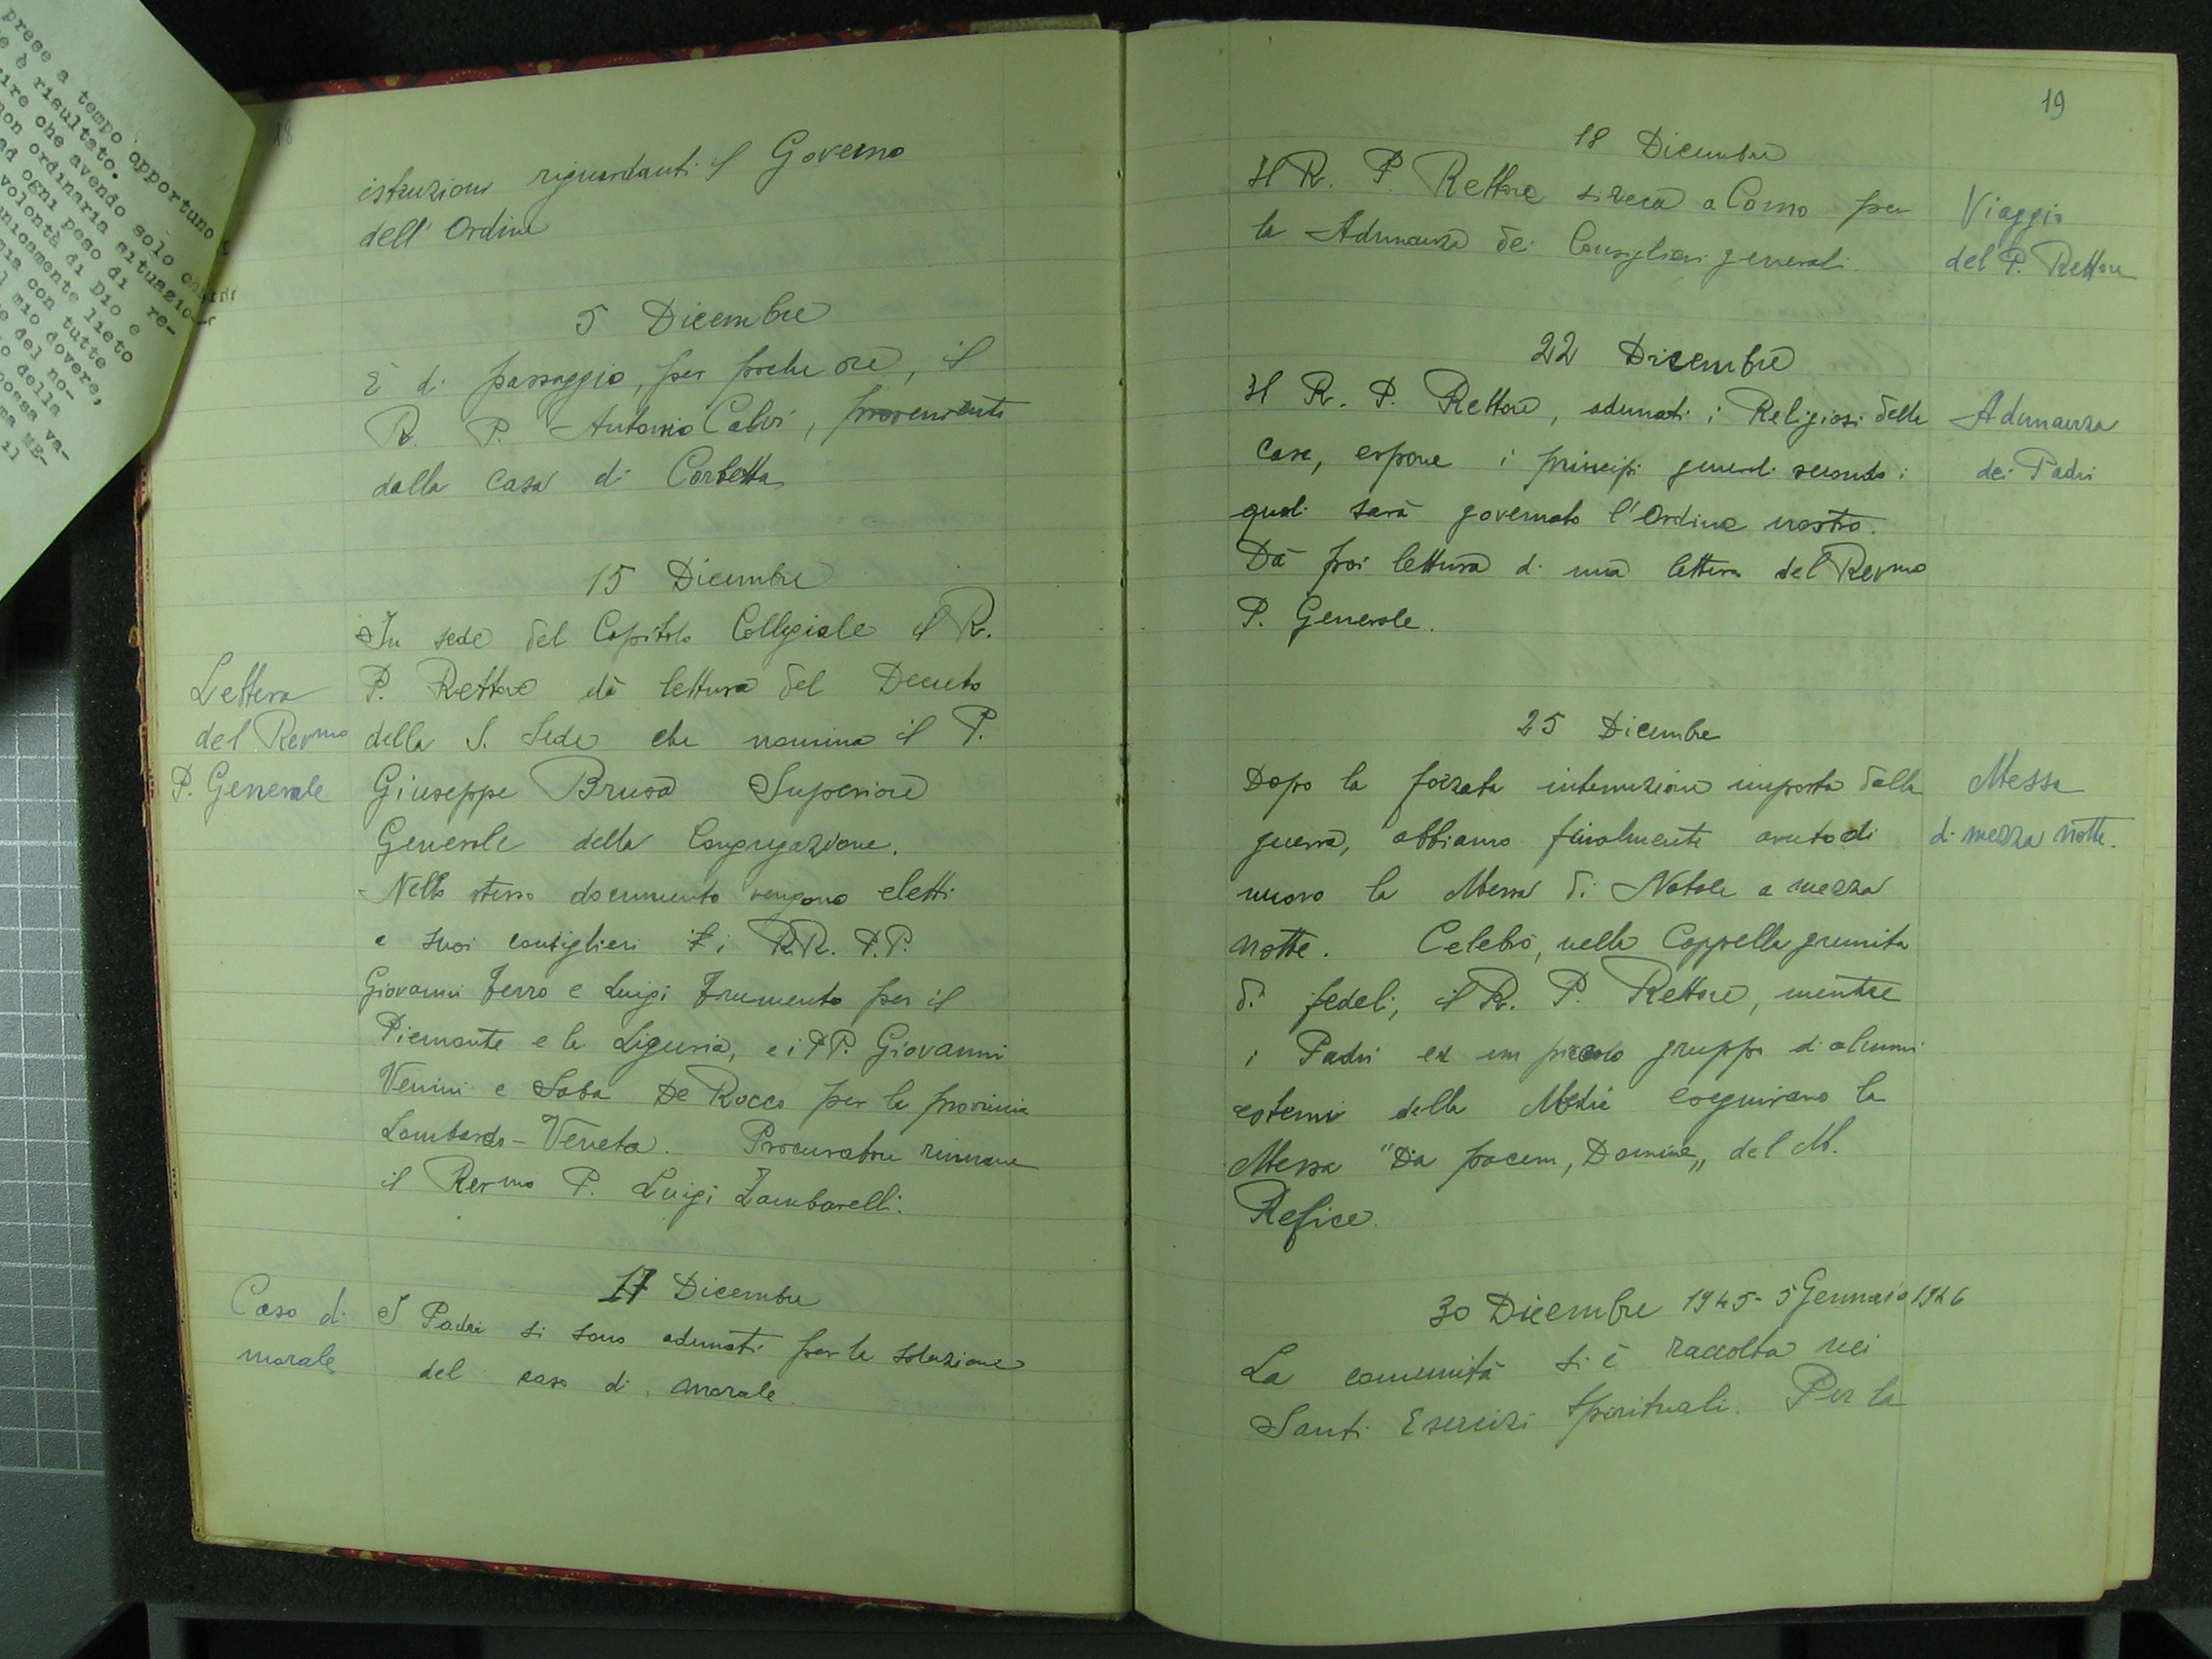 prese a tempo opportuno
e è risultato.
ire che avendo solo
non ordinaria situazio-
ad ogni peso di re-
volontà di Dio e
nicamente lieto
mia con tutte
l mio dovere,
e del no-
o della
possa va-
ma ME-
il
18
istruzioni riguardanti il Governo
dell'Ordine
5 Dicembre
È di passaggio, per poche ore, il
R. P. Antonio Calvi, proveniente
dalla casa di Corbetta
15 Dicembre
In sede del Capitolo Collegiale il R.
P. Rettore dà lettura del Decreto
della S. Sede che nomina il P.
Giuseppe Brusa Superiore
Generale della Congregazione.
Nello stesso documento vengono eletti
a suoi consiglieri i RR. P.P.
Giovanni Ferro e Luigi Frumento per il
Piemonte e la Liguria, e i PP. Giovanni
Venini e Saba De Rocco per la provincia
Lombardo-Veneta. Procuratore rimane
il Rev.mo P. Luigi Zambarelli.
Lettera
del Rev.mo
P. Generale
17 Dicembre
I Padri si sono adunati per la soluzione
del caso di morale.
Caso di
morale
19
18 Dicembre
Il R. P. Rettore si reca a Como per
la Adunanza dei Consiglieri generali.
Viaggio
del P. Rettore
22 Dicembre
Il R. P. Rettore, adunati i Religiosi della
casa, espone i principi generali secondo i
quali sarà governato l'Ordine nostro.
Dà poi lettura di una lettera del Rev.mo
P. Generale.
Adunanza
dei Padri
25 Dicembre
Dopo la forzata interruzione imposta dalla
guerra, abbiamo finalmente avuto di
nuovo la Messa di Natale a mezza
notte. Celebrò, nella Cappella gremita
di fedeli, il R. P. Rettore, mentre
i Padri ed un piccolo gruppo di alunni
esterni della Media eseguirono la
Messa "Da pacem, Domine„ del M.
Refice.
Messa
di mezza notte.
30 Dicembre 1945 - 5 Gennaio 1946
La comunità si è raccolta nei
Santi Esercizi Spirituali. Per la